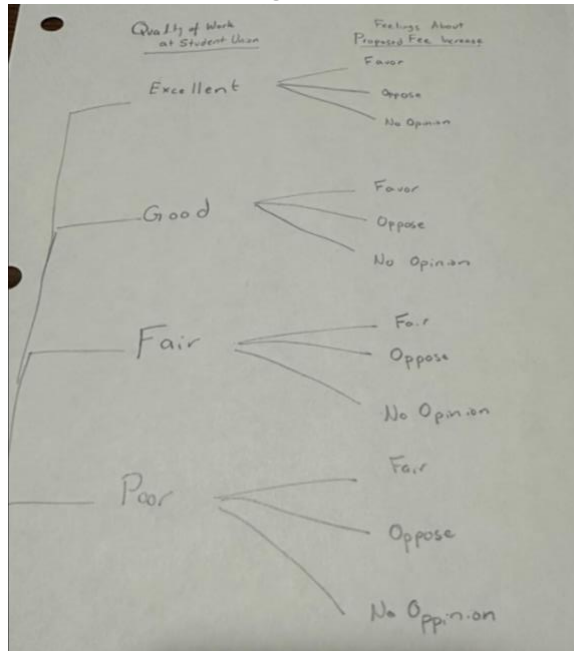 Quality of Work
at Student Union
Feelings About
Proposed Fee Increase
Excellent
Favor
Oppose
No Opinion
Good
Favor
Oppose
No Opinion
Fair
Fair
Oppose
No Opinion
Poor
Fair
Oppose
No Oppinion